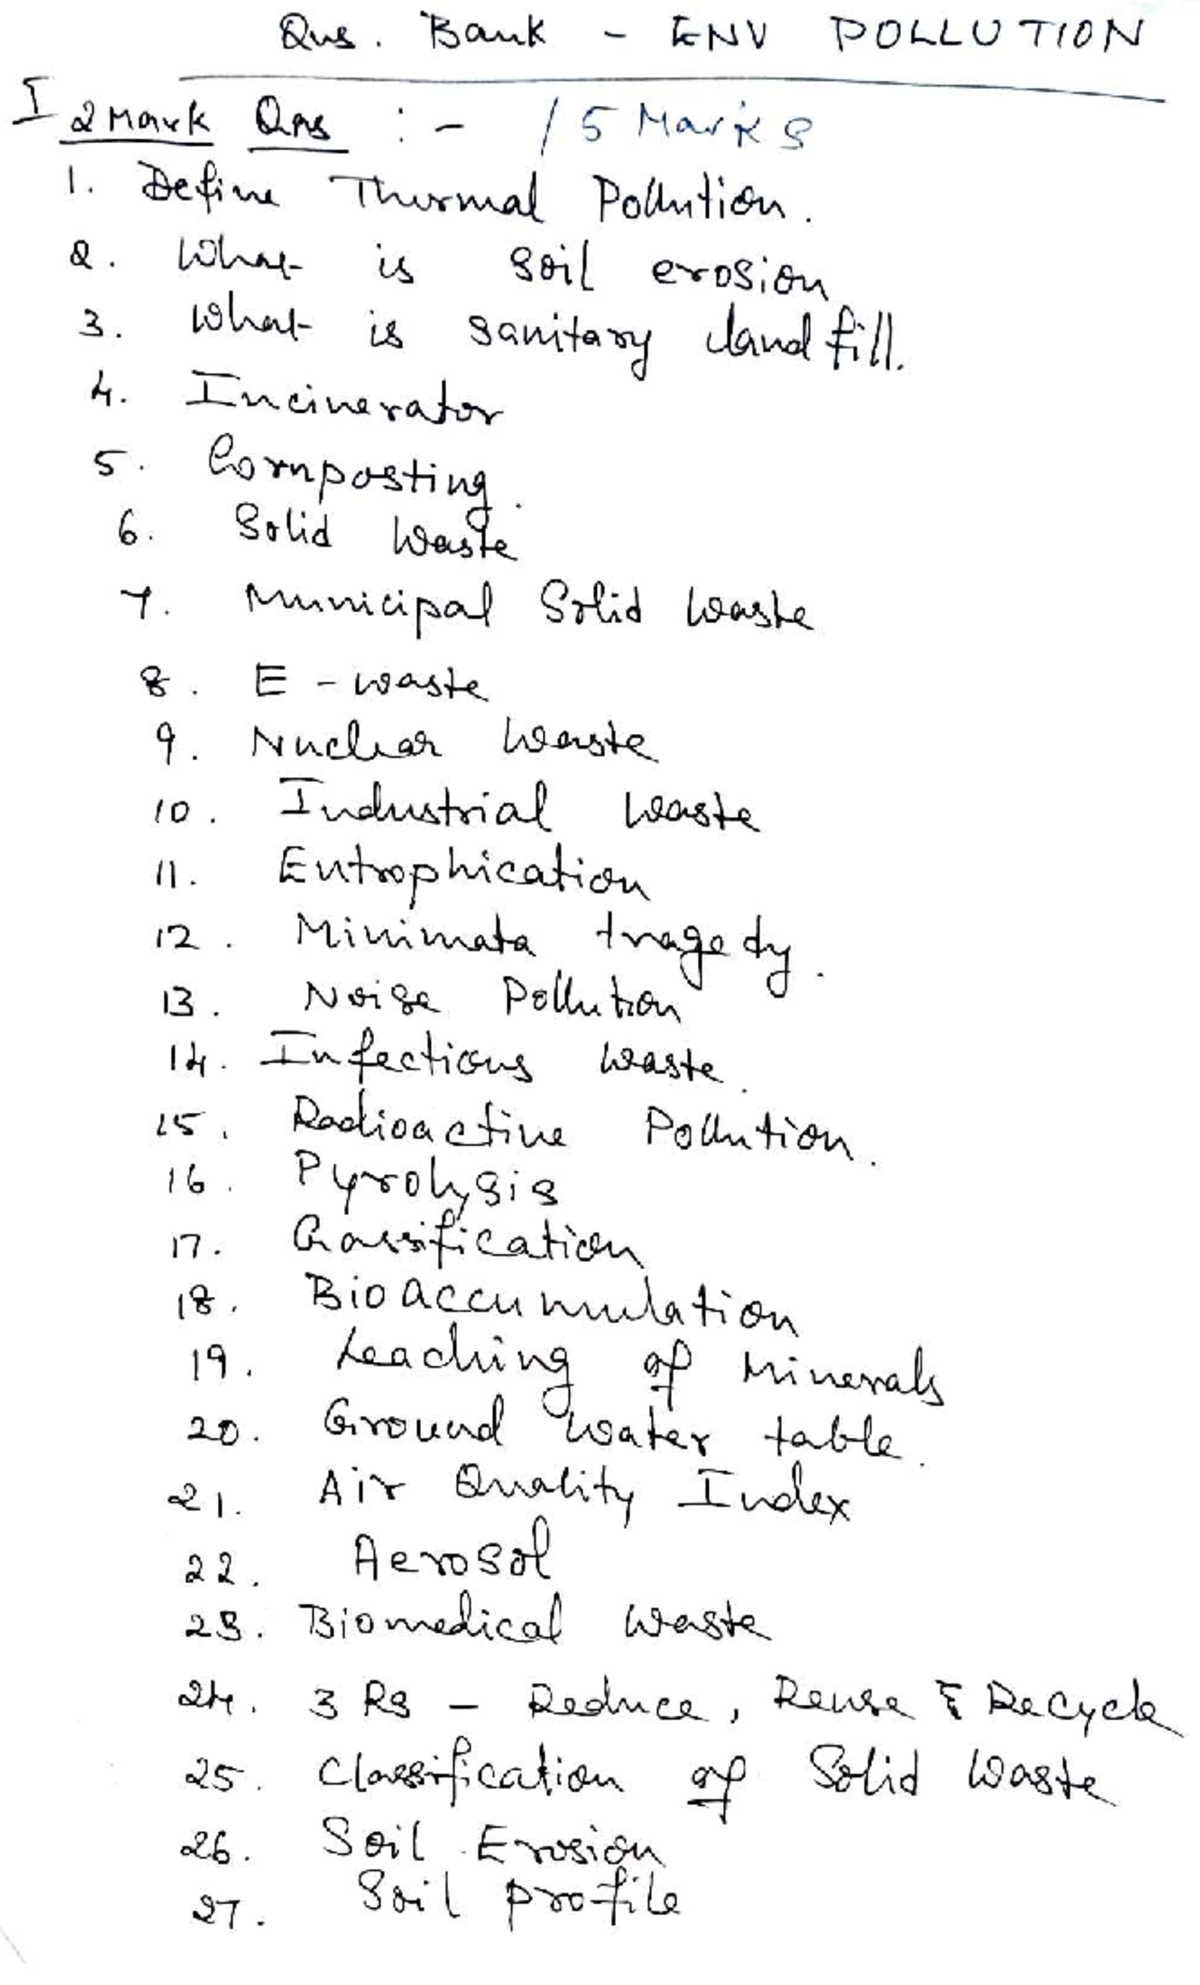 Qns. Bank - ENV POLLUTION
I 2 Mark Qns :- / 5 Marks
1. Define Thermal Pollution.
2. What is soil erosion
3. What is sanitary land fill.
4. Incinerator
5. Composting.
6. Solid Waste
7. Municipal Solid Waste
8. E - waste
9. Nuclear Waste
10. Industrial Waste
11. Eutrophication
12. Minimata tragedy.
13. Noise Pollution
14. Infectious waste.
15. Radioactive Pollution.
16. Pyrolysis
17. Gassification
18. Bioaccumulation
19. Leaching of Minerals
20. Ground water table.
21. Air Quality Index
22. Aerosol
23. Biomedical Waste
24. 3 Rs - Reduce, Reuse & Recycle
25. Classification of Solid Waste
26. Soil Erosion
27. Soil profile